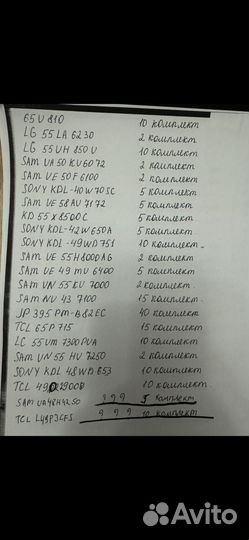 65U 810 10 комплект
LG 55 LA 6230 2 комплект
LG 55 UH 850 U 10 комплект
SAM UA 50 KU 6072 2 комплект
SAM UE 50 F 6100 2 комплект
SONY KDL-40 W 705C 5 комплект
SAM UE 58 AU 7172 5 комплект
KD 55 X 8500 C 5 комплект
SONY KDL-42 W 650 A 5 комплект
SONY KDL-49 WD 751 10 комплект
SAM UE 55 H 8000 AG 2 комплект
SAM UE 49 MU 6400 5 комплект
SAM UN 55 KU 7000 2 комплект
SAM NU 43 7100 15 комплект
JP 395 PM-B 82 EC 40 комплект
TCL 65 P 715 15 комплект
LC 55 UM 7300 PVA 10 комплект
SAM UN 55 HU 7250 2 комплект
SONY KDL 48 WD 653 10 комплект
TCL 10 комплект
SAM UA 48 H 4250 ??? 5 комплект
TCL L49P3CFS ??? 10 комплект
Avito